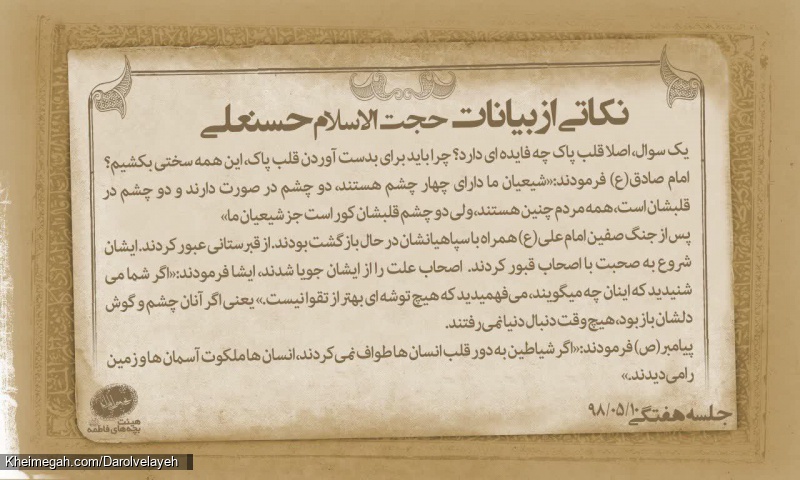 نکاتی از بیانات حجت الاسلام حسنعلی
یک سوال، اصلا قلب پاک چه فایده ای دارد؟ چرا باید برای بدست آوردن قلب پاک، این همه سختی بکشیم؟
امام صادق(ع) فرمودند:«شیعیان ما دارای چهار چشم هستند، دو چشم در صورت دارند و دو چشم در
قلبشان است، همه مردم چنین هستند، ولی دو چشم قلبشان کور است جز شیعیان ما»
پس از جنگ صفین امام علی(ع) همراه با سپاهیانشان در حال بازگشت بودند. از قبرستانی عبور کردند. ایشان
شروع به صحبت با اصحاب قبور کردند. اصحاب علت را از ایشان جویا شدند، ایشا فرمودند:«اگر شما می
شنیدید که اینان چه میگویند، می فهمیدید که هیچ توشه ای بهتر از تقوا نیست.» یعنی اگر آنان چشم و گوش
دلشان باز بود، هیچ وقت دنبال دنیا نمی رفتند.
پیامبر(ص) فرمودند:«اگر شیاطین به دور قلب انسان ها طواف نمی کردند، انسان ها ملکوت آسمان ها و زمین
را می دیدند.»
جلسه هفتگی ۹۸/۰۵/۱۰
هیئت
بچه‌های فاطمه
Kheimegah.com/Darolvelayeh